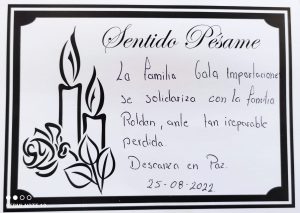 Sentido Pésame
La familia Gala Importaciones
se solidariza con la familia
Roldan, ante tan irreparable
perdida.
Descanza en Paz.
25-08-2022